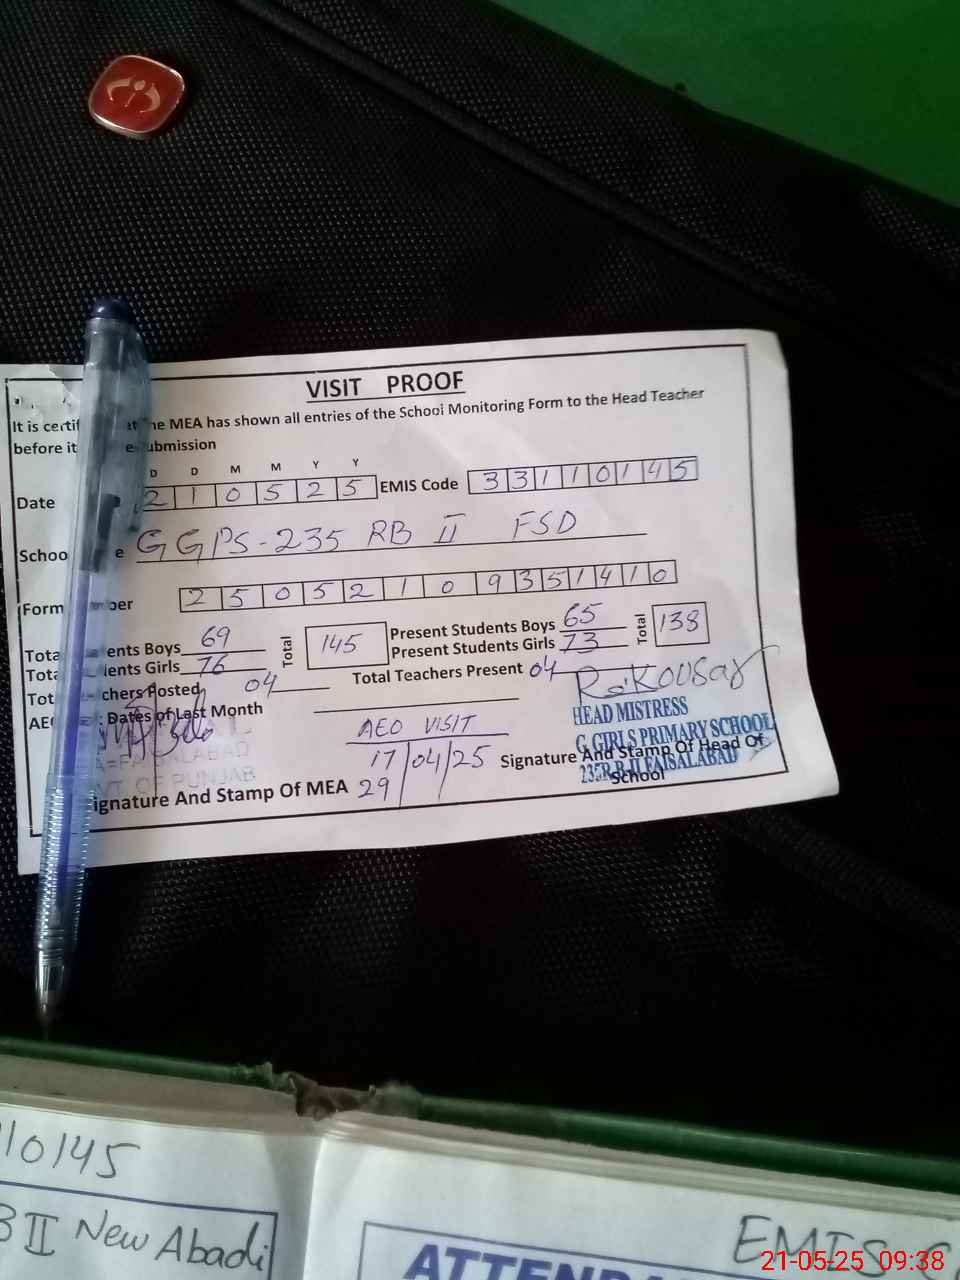 VISIT PROOF
It is certif at he MEA has shown all entries of the School Monitoring Form to the Head Teacher
before it e submission
D D M M Y Y
Date 2 1 0 5 2 5 EMIS Code 3 3 1 1 0 1 4 5
Schoo e GGPS-235 RB II FSD
Form mber 2 5 0 5 2 1 0 9 3 5 1 4 1 0
Tota ents Boys 69 Total 145 Present Students Boys 65 Total 138
Tota ents Girls 76 Present Students Girls 73
Tot chers Posted 04 Total Teachers Present 04
AEO Dates of Last Month
R. Kousar
HEAD MISTRESS
G. GIRLS PRIMARY SCHOOL
235 R.B. II FAISALABAD
AEO VISIT
17/04/25
29
A=FAISALABAD
VT. OF PUNJAB
ignature And Stamp Of MEA
Signature And Stamp Of Head Of
School
10145
B II New Abadi
EMIS C
ATTENDA
21-05-25 09:38